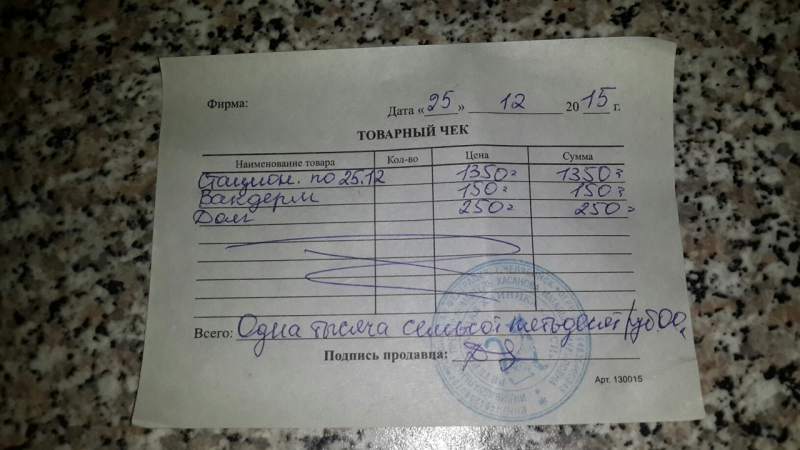 Фирма:
Дата «25» 12 2015 г.
ТОВАРНЫЙ ЧЕК
Наименование товара Кол-во Цена Сумма
Стацион. по 25.12 1350= 1350=
Вакдерм 150= 150=
Долг 250= 250=
Всего: Одна тысяча семьсот пятьдесят руб.00
Подпись продавца:
Арт. 130015